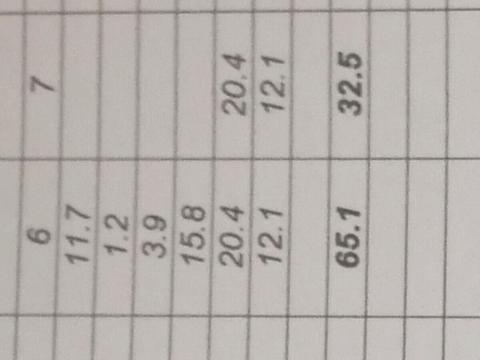 6 7
11.7
1.2
3.9
15.8
20.4 20.4
12.1 12.1
65.1 32.5